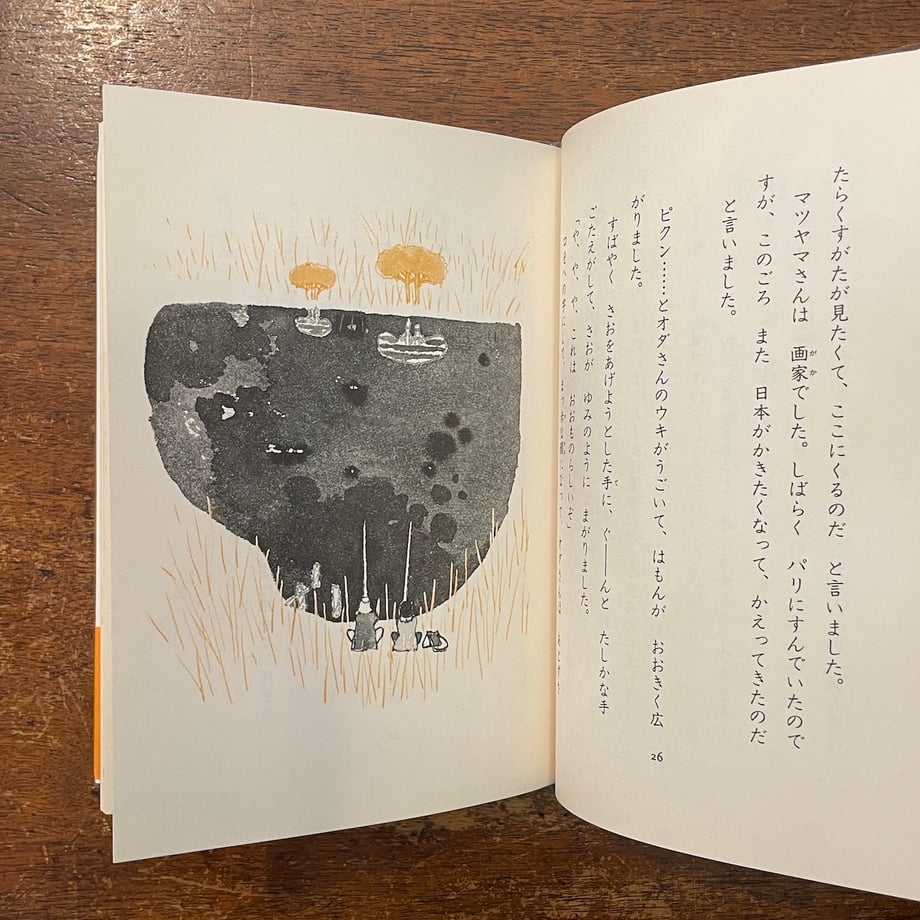 たらくすがたが見たくて、ここにくるのだ　と言いました。
マツヤマさんは　画家でした。しばらく　パリにすんでいたので
すが、このごろ　また　日本がかきたくなって、かえってきたのだ
と言いました。
ピクン……とオダさんのウキがうごいて、はもんが　おおきく広
がりました。
すばやく　さおをあげようとした手に、ぐ──んと　たしかな手
ごたえがして、さおが　ゆみのように　まがりました。
「や、や、や、これは　おおものらしいぞ」
がか
て
26